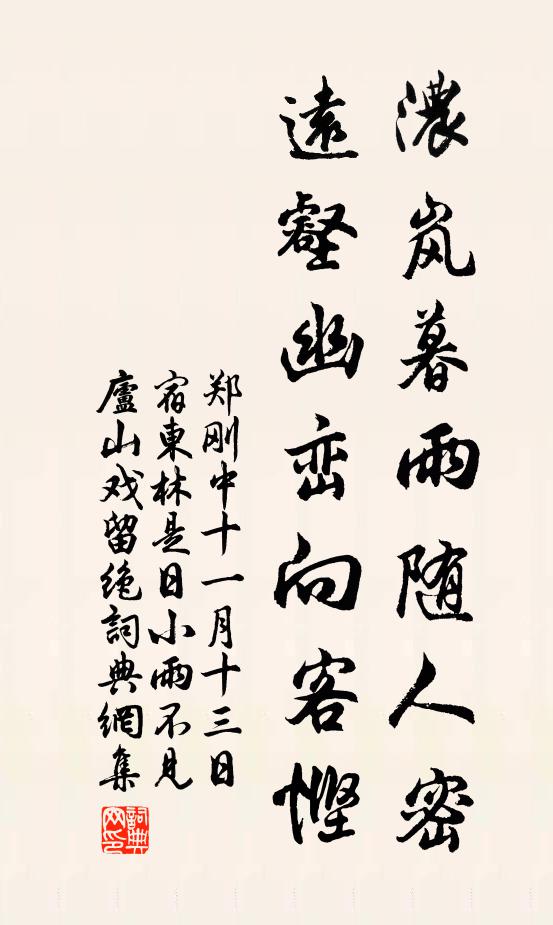 濃岚暮雨随人密
遠壑幽峦向客慳
郑刚中十一月十三日
宿東林是日小雨不见
廬山戏留绝詞典網集
詞典网印